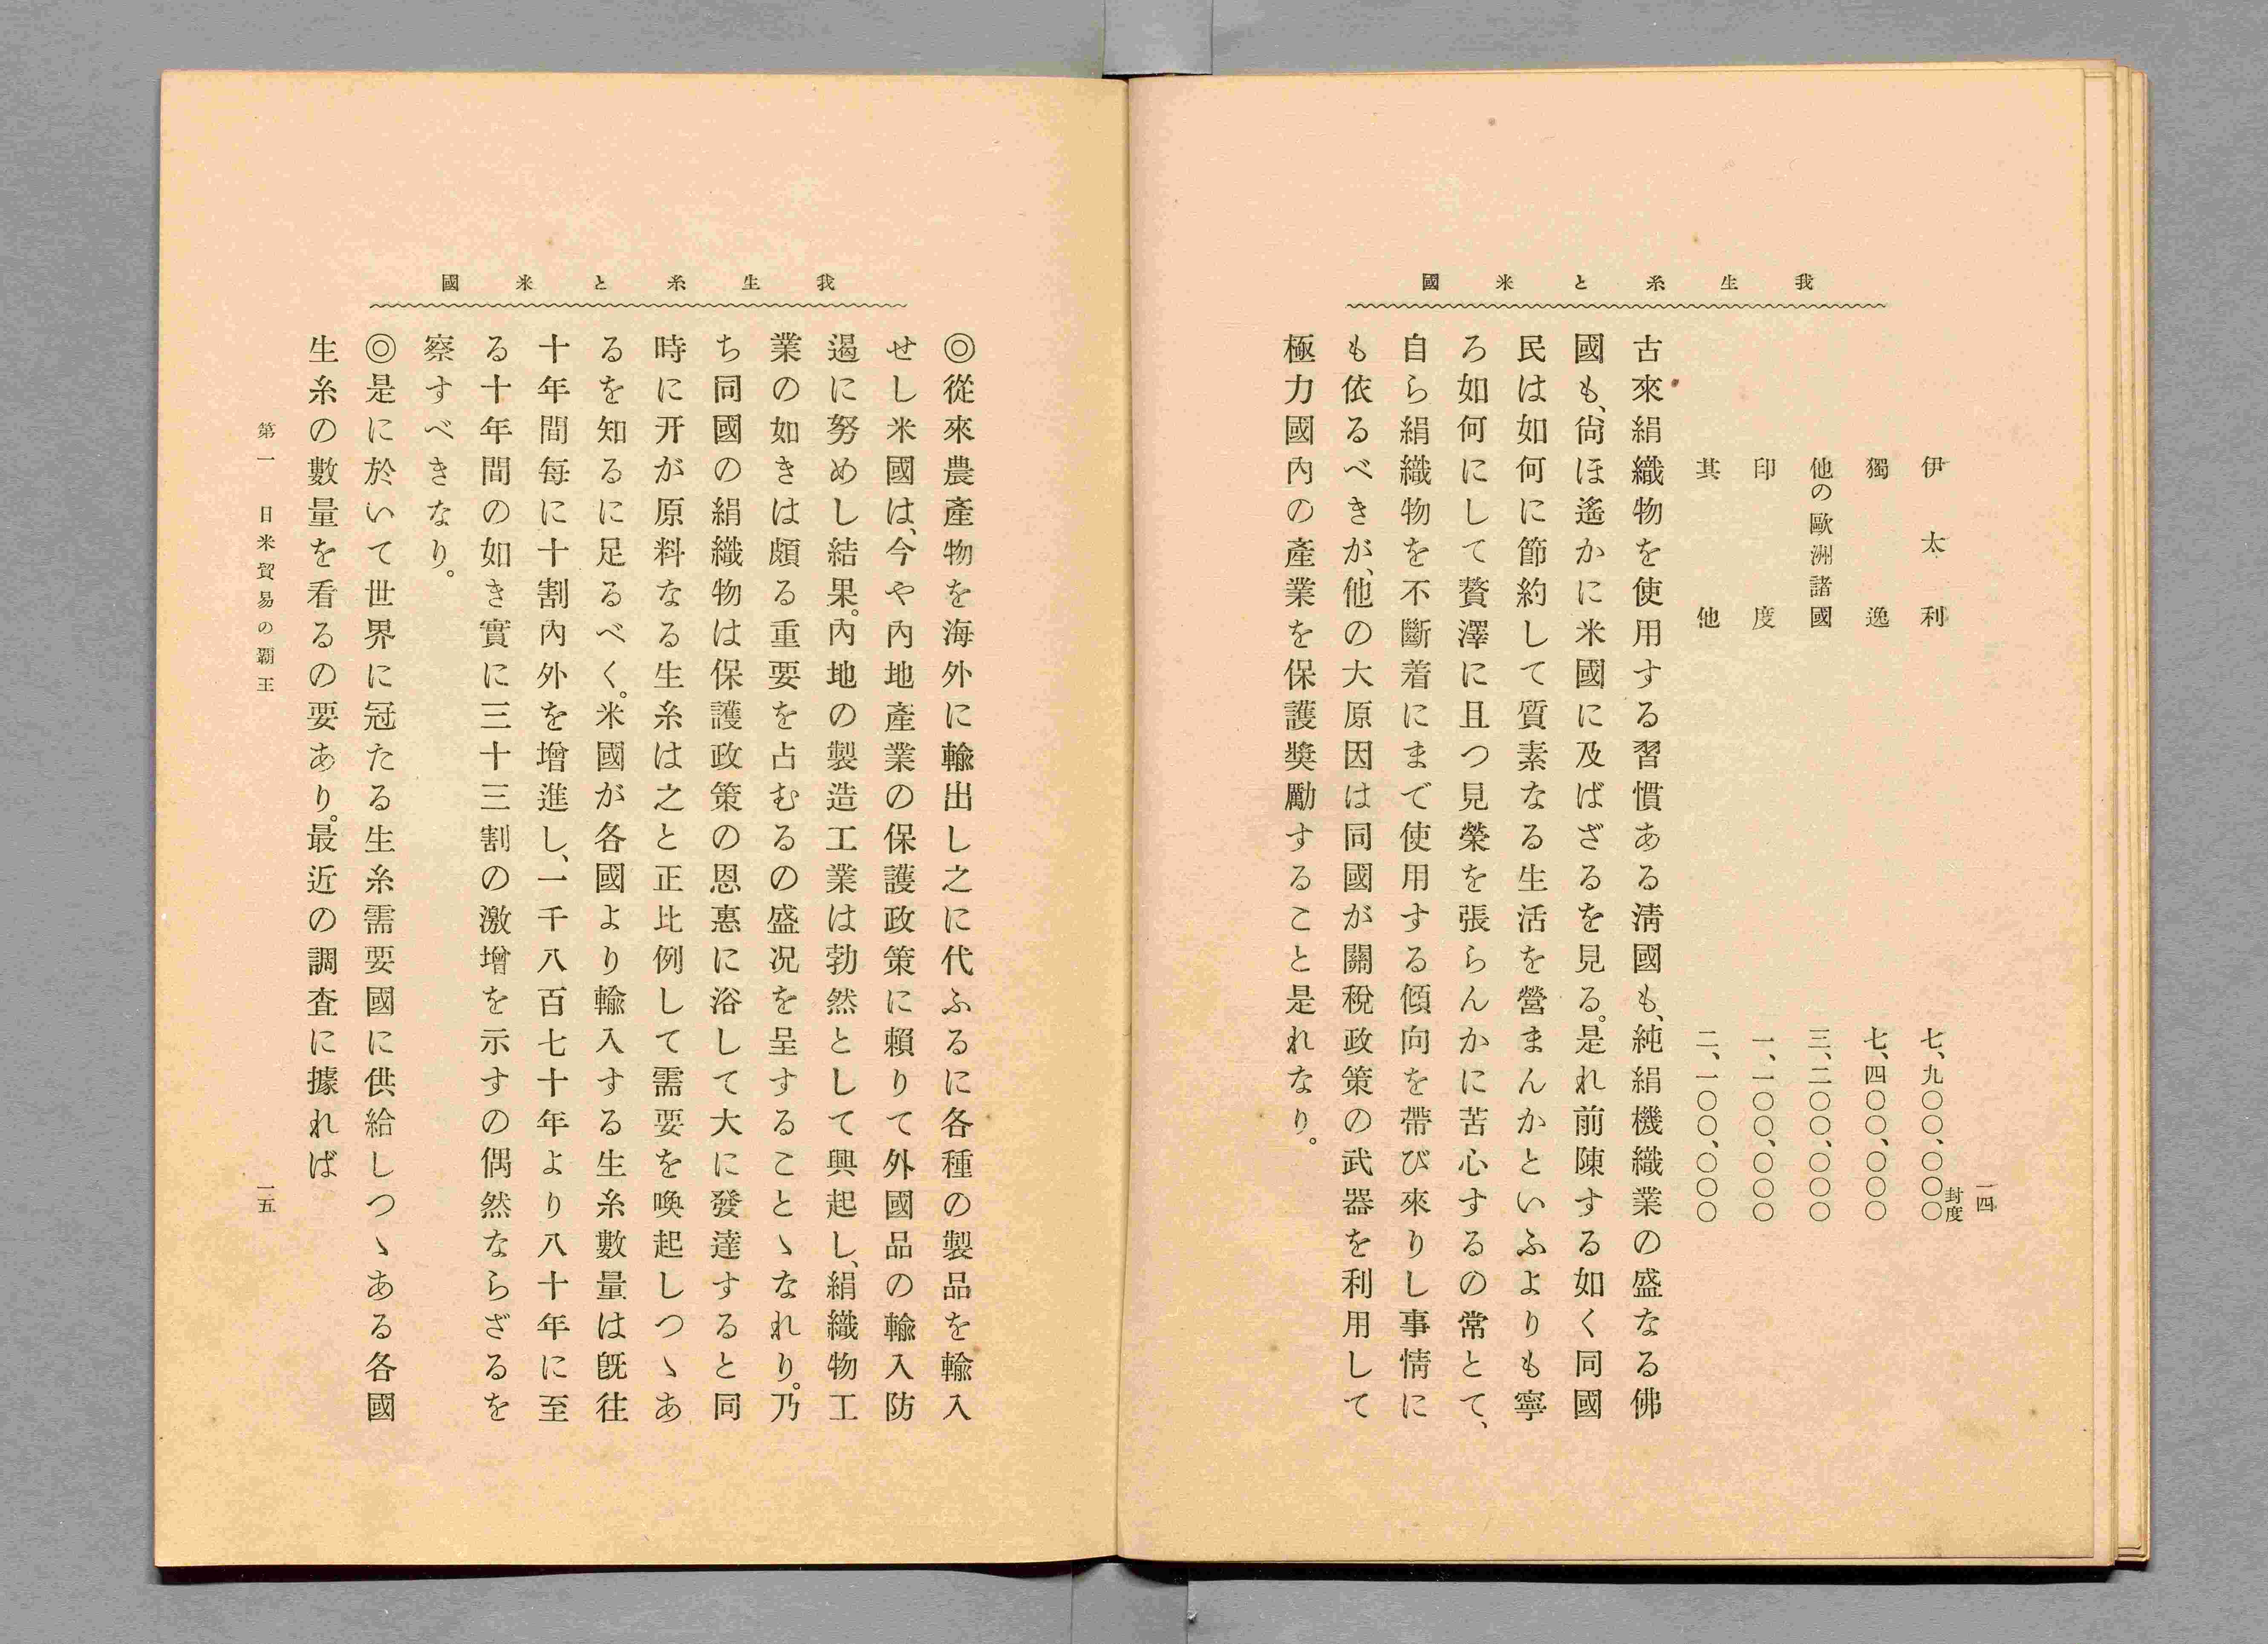 我生糸と米國
一四
伊太利 七、九〇〇、〇〇〇封度
獨逸 七、四〇〇、〇〇〇
他の歐洲諸國 三、二〇〇、〇〇〇
印度 一、一〇〇、〇〇〇
其他 二、一〇〇、〇〇〇
古來絹織物を使用する習慣ある淸國も、純絹機織業の盛なる佛
國も、尙ほ遙かに米國に及ばざるを見る。是れ前陳する如く同國
民は如何に節約して質素なる生活を營まんかといふよりも寧
ろ如何にして贅澤に且つ見榮を張らんかに苦心するの常とて、
自ら絹織物を不斷着にまで使用する傾向を帶び來りし事情に
も依るべきが、他の大原因は同國が關稅政策の武器を利用して
極力國內の產業を保護獎勵すること是れなり。
我生糸と米國
◎從來農產物を海外に輸出し之に代ふるに各種の製品を輸入
せし米國は、今や內地產業の保護政策に賴りて外國品の輸入防
遏に努めし結果。內地の製造工業は勃然として興起し、絹織物工
業の如きは頗る重要を占むるの盛況を呈することゝなれり。乃
ち同國の絹織物は保護政策の恩惠に浴して大に發達すると同
時に开が原料なる生糸は之と正比例して需要を喚起しつゝあ
るを知るに足るべく。米國が各國より輸入する生糸數量は旣往
十年間每に十割內外を增進し、一千八百七十年より八十年に至
る十年間の如き實に三十三割の激增を示すの偶然ならざるを
察すべきなり。
◎是に於いて世界に冠たる生糸需要國に供給しつゝある各國
生糸の數量を看るの要あり。最近の調査に據れば
第一 日米貿易の覇王
一五